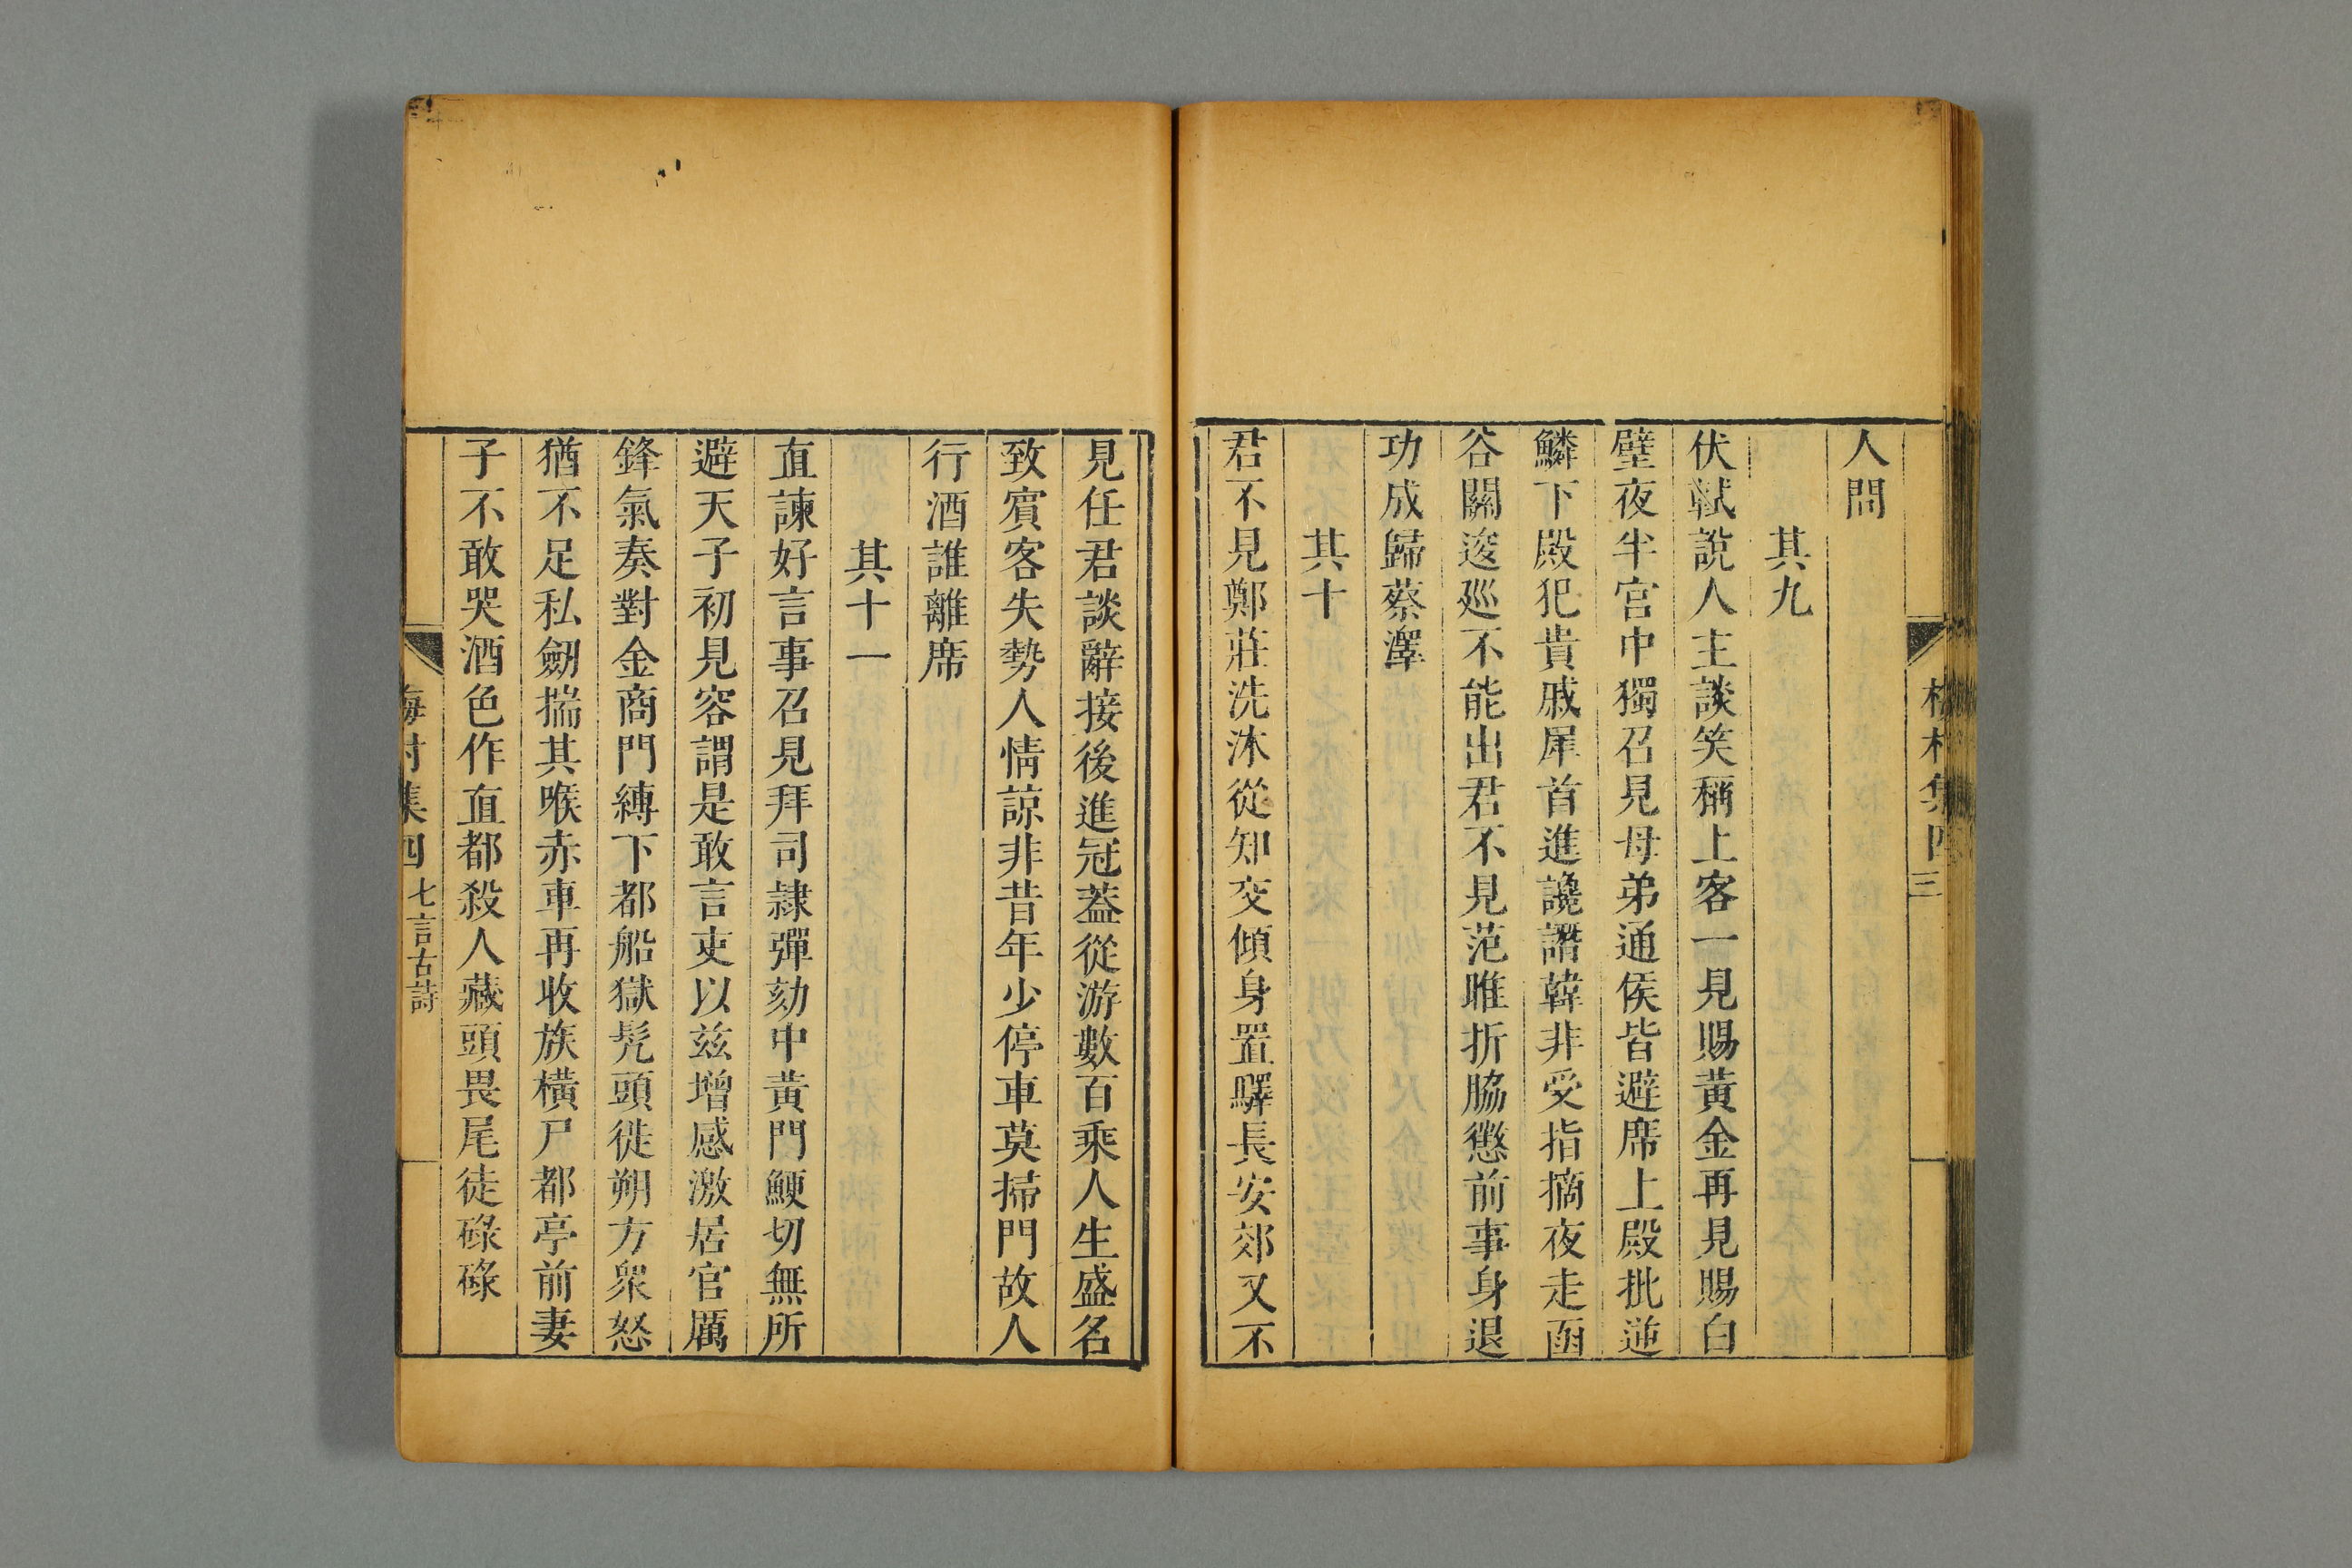 人問
其九
伏軾說人主談笑稱上客一見賜黃金再見賜白
璧夜半宮中獨召見母弟通侯皆避席上殿批逆
鱗下殿犯貴戚犀首進讒譖韓非受指摘夜走函
谷關逡巡不能出君不見范雎折脇懲前事身退
功成歸蔡澤
其十
君不見鄭莊洗沐從知交傾身置驛長安郊又不
見任君談辭接後進冠蓋從游數百乘人生盛名
致賓客失勢人情諒非昔年少停車莫掃門故人
行酒誰離席
其十一
直諫好言事召見拜司隷彈劾中黃門鯁切無所
避天子初見容謂是敢言吏以玆增感激居官厲
鋒氣奏對金商門縛下都船獄髠頭徙朔方衆怒
猶不足私劒揣其喉赤車再收族橫尸都亭前妻
子不敢哭酒色作直都殺人藏頭畏尾徒碌碌
梅村集四 七言古詩
三